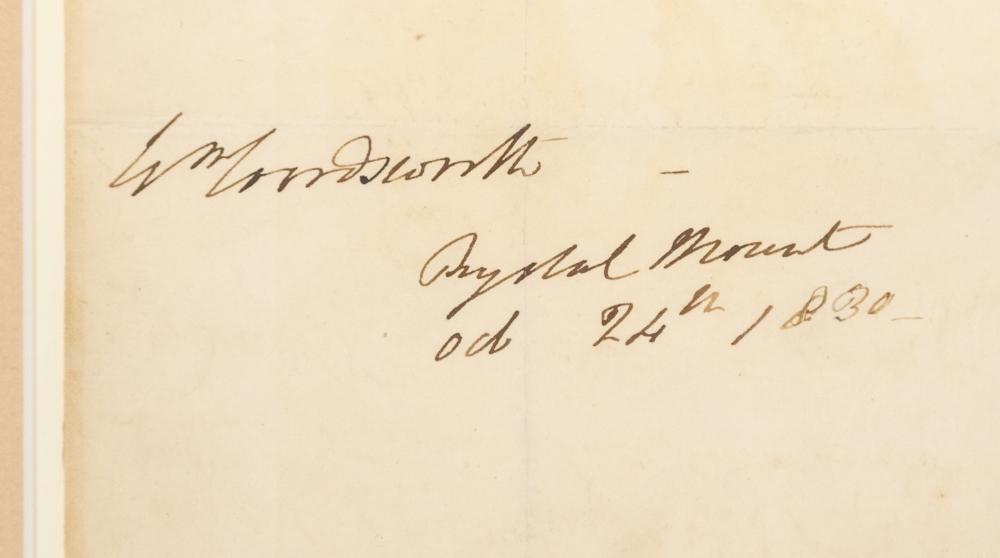 Wm Wordsworth —
Rydal Mount
Oct 24th 1830 —